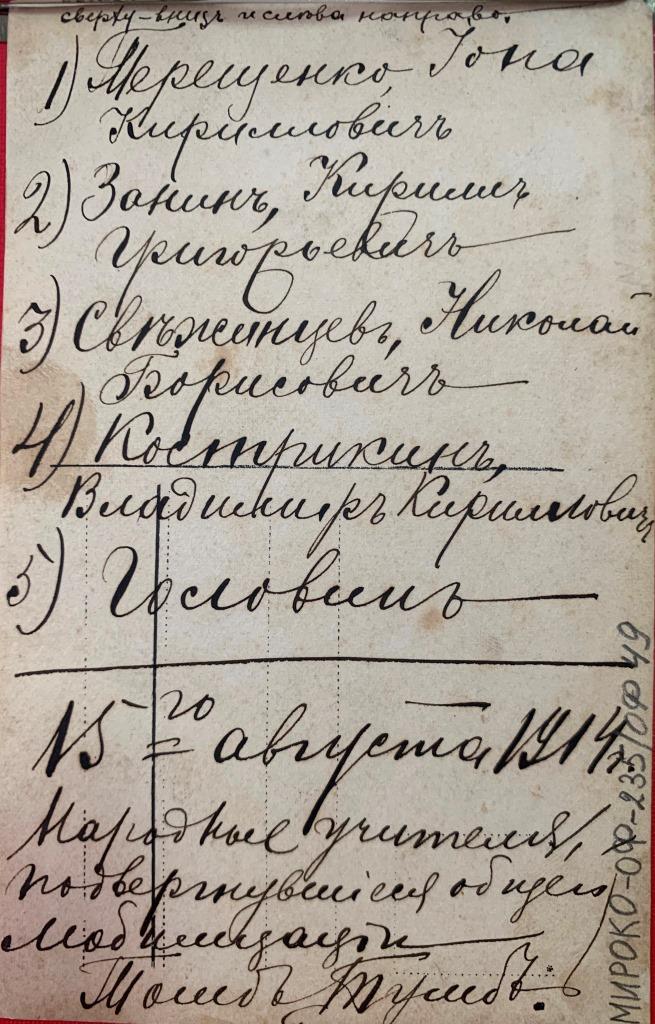 сверху-внизъ и слѣва направо.
1) Терещенко, Іона
Кирилловичъ
2) Занинъ, Кириллъ
Григорьевичъ
3) Свѣжинцевъ, Николай
Борисовичъ
4) Кострикинъ,
Владимиръ Кирилловичъ
5) Головинъ
15го августа 1914г.
Народные учителя,
подвергнувшіеся общей
мобилизаціи
МИРОКО-ОФ-235/ОФ 49